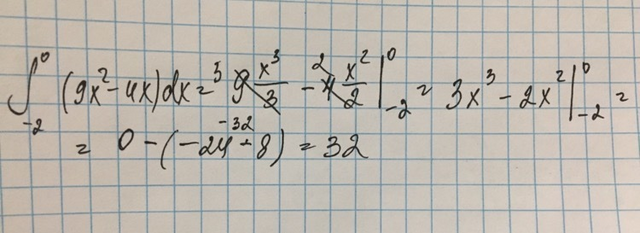 ∫₋₂⁰ (9x² - 4x)dx = ³9̸ x³/3̸ - ²4̸ x²/2̸ |₋₂⁰ = 3x³ - 2x² |₋₂⁰ =
= 0 - (-24 - 8) = 32
-32